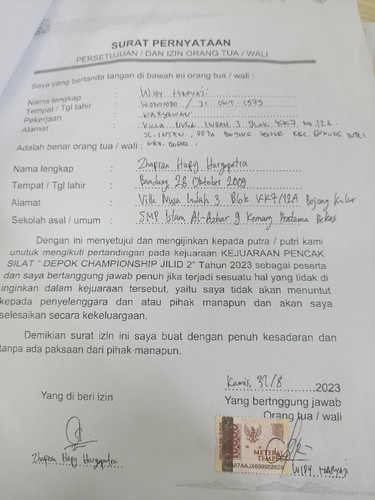 SURAT PERNYATAAN
PERSETUJUAN / DAN IZIN ORANG TUA / WALI
Saya yang bertanda tangan di bawah ini orang tua / wali :
Nama lengkap : WIDY HARYAJI
Tempat / Tgl lahir : WONOSOBO / 31 OKT 1979
Pekerjaan : KARYAWAN
Alamat : VILLA NUSA INDAH 3 BLOK KK7 NO. 12A
JL. INTAN, DESA BOJONG KULUR KEC. GUNUNG PUTRI
Adalah benar orang tua / wali : KAB. BOGOR
Nama lengkap : Zhafran Hapy Haryaputra
Tempat / Tgl lahir : Bandung 28 Oktober 2009
Alamat : Villa Nusa Indah 3 Blok KK7/12A Bojong Kulur
Sekolah asal / umum : SMP Islam Al-Azhar 9 Kemang Pratama Bekasi
Dengan ini menyetujui dan mengijinkan kepada putra / putri kami
unutuk mengikuti pertandingan pada kejuaraan KEJUARAAN PENCAK
SILAT " DEPOK CHAMPIONSHIP JILID 2" Tahun 2023 sebagai peserta
dan saya bertanggung jawab penuh jika terjadi sesuatu hal yang tidak di
inginkan dalam kejuaraan tersebut, yaitu saya tidak akan menuntut
kepada penyelenggara dan atau pihak manapun dan akan saya
selesaikan secara kekeluargaan.
Demikian surat izin ini saya buat dengan penuh kesadaran dan
tanpa ada paksaan dari pihak manapun.
Kamis, 31/8 2023
Yang di beri izin
Yang bertnggung jawab
Orang tua / wali
10000
METERAI
TEMPEL
Zhafran Hapy Haryaputra
WIDY HARYAJI